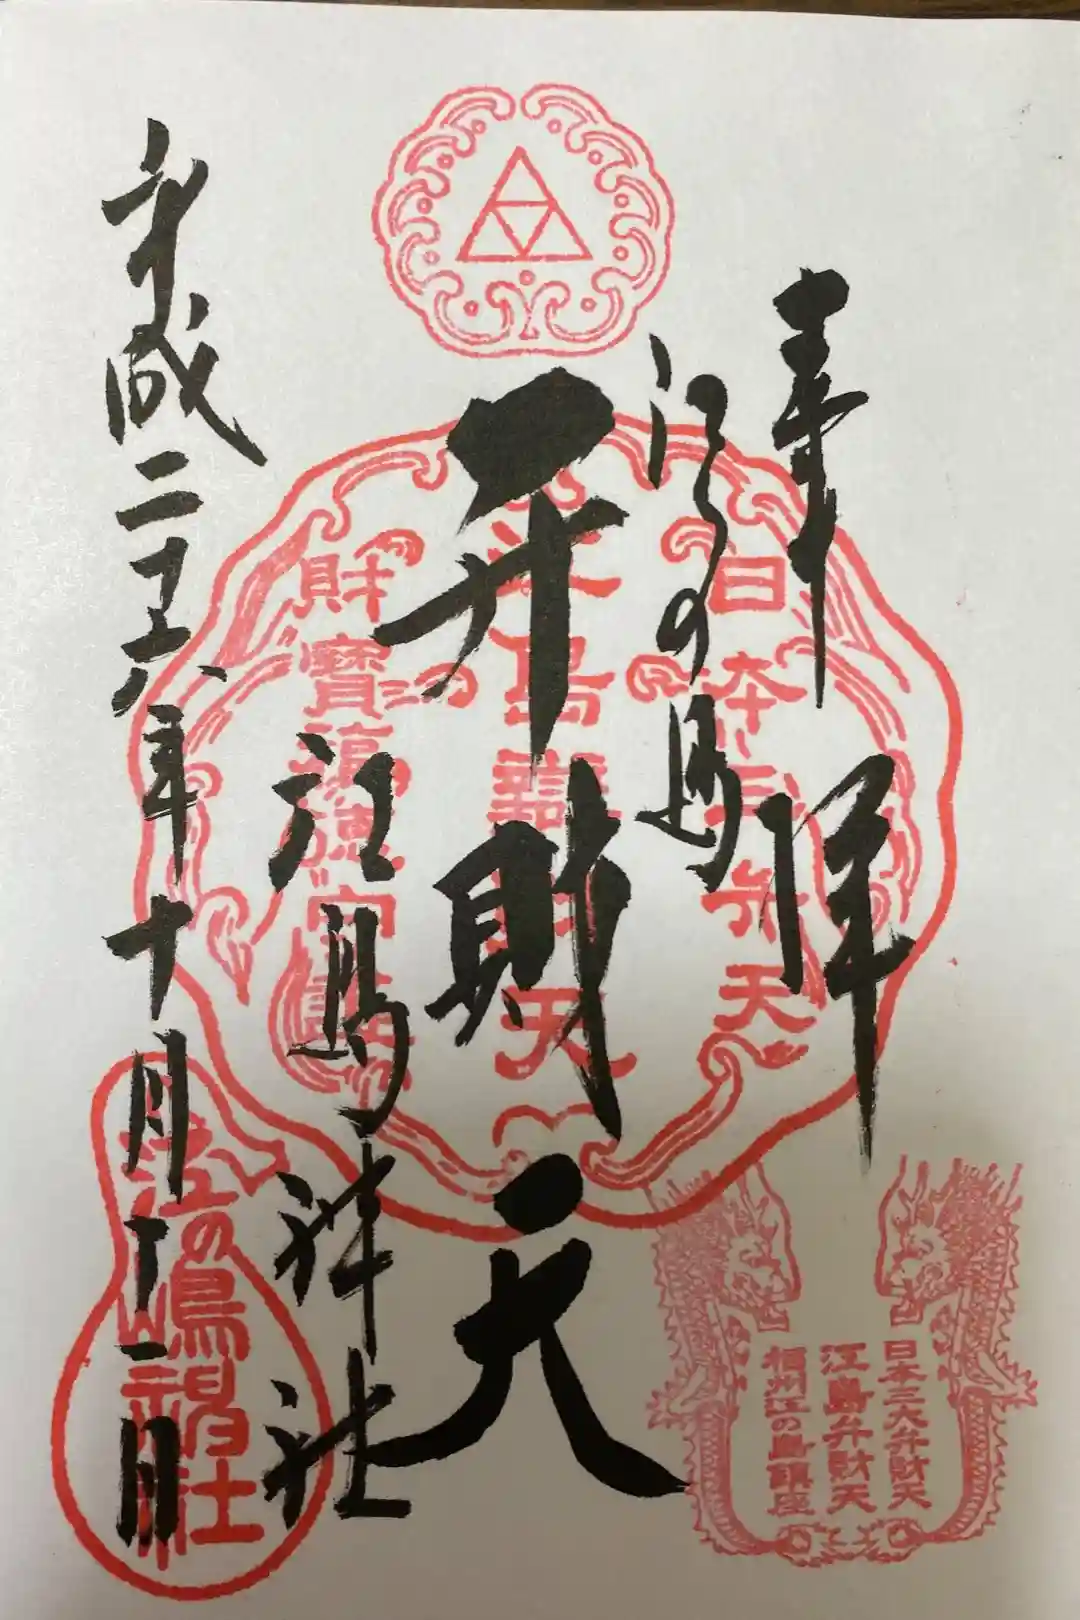 奉拝
江の島
弁財天
江島神社
平成二十八年十月十一日
日本三弁天
江島辨財天
財寶福徳守護
江の嶋神社
日本三大弁財天
江島弁財天
相州江の島鎮座